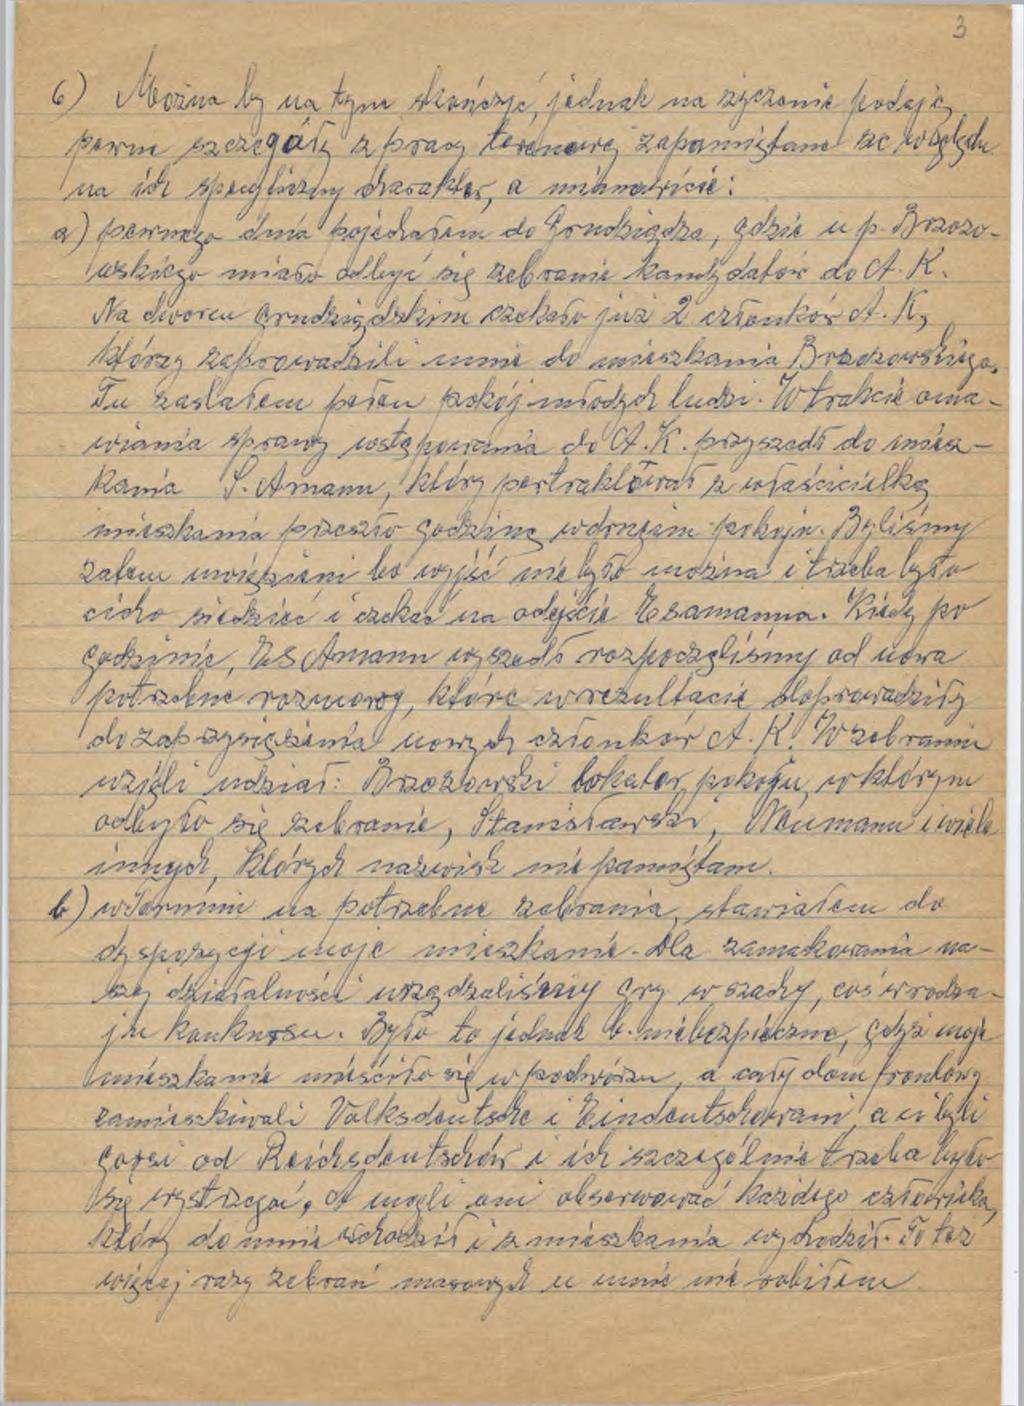 3
6) Można by na tym skończyć, jednak na życzenie podaję
pewne szczegóły z pracy terenowej zapamiętane ze względu
na ich specyficzny charakter, a mianowicie:
a) pewnego dnia pojechałem do Grudziądza, gdzie u p. Brzozo-
wskiego miało odbyć się zebranie kandydatów do A. K.
Na dworcu grudziądzkim czekało już 2 członków A. K,
którzy zaprowadzili mnie do mieszkania Brzozowskiego.
Tu zastałem pełen pokój młodych ludzi. W trakcie oma-
wiania sprawy wstępowania do A. K. przyszedł do miesz-
kania S. Amann, który pertraktował z właścicielką
mieszkania przeszło godzinę w drugim pokoju. Byliśmy
zatem uwięzieni bo wyjść nie było można i trzeba było
cicho siedzieć i czekać na odejście Esamanna. Kiedy po
godzinie, ES Amann wyszedł rozpoczęliśmy od nowa
potrzebne rozmowy, które w rezultacie doprowadziły
do zaprzysiężenia nowych członków A. K. W zebraniu
wzięli udział: Brzozowski lokator pokoju, w którym
odbyło się zebranie, Stanisławski, Neumann i wiele
innych, których nazwisk nie pamiętam.
b) w Toruniu na potrzebne zebrania, stawiałem do
dyspozycji moje mieszkanie. Dla zamakowania na-
szej działalności urządzaliśmy gry w szachy, coś w rodza-
ju konkursu. Było to jednak b. niebezpieczne, gdyż moje
mieszkanie mieściło się w podwórzu, a cały dom frontowy
zamieszkiwali Volksdeutsche i Eindeutschowani, a ci byli
gorsi od Reichsdeutschów i ich szczególnie trzeba było
się wystrzegać. A mogli oni obserwować każdego człowieka,
który do mnie wchodził i z mieszkania wychodził. To też
więcej razy zebrań masowych u mnie nie robiłem